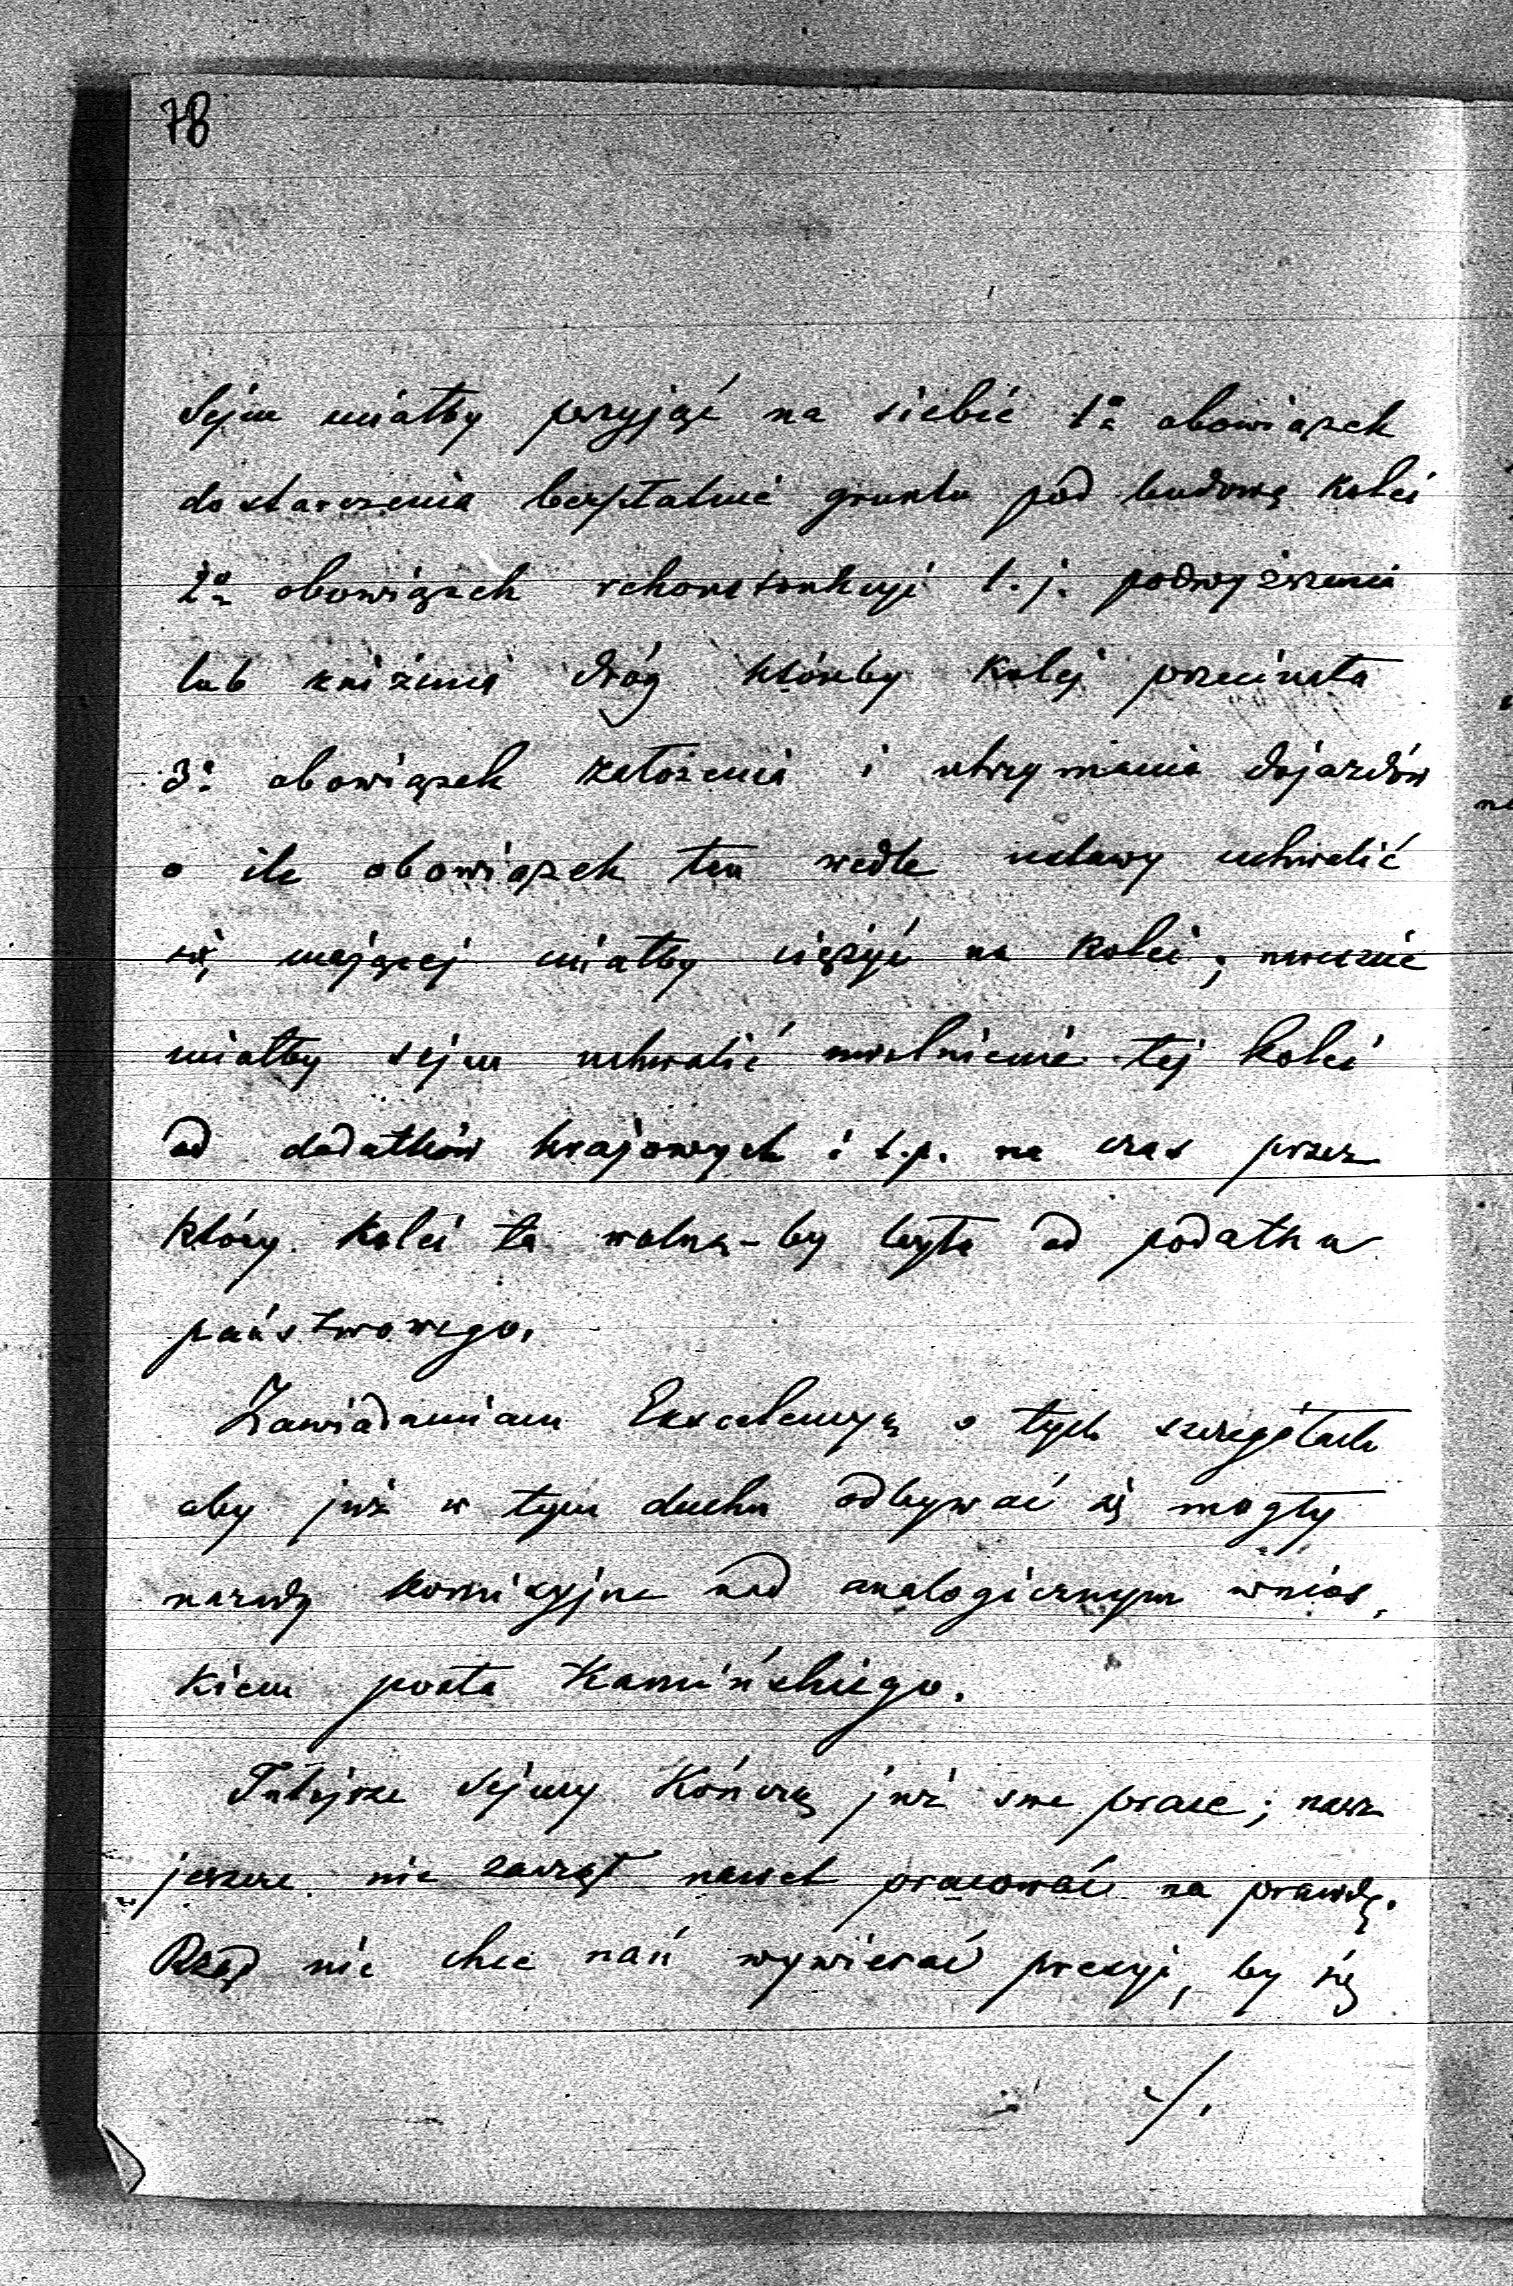 78
Sejm miałby przyjąć na siebie 1º obowiązek
dostarczenia bezpłatnie gruntu pod budowę kolei
2º obowiązek rekonstrukcyi t. j. podwyższenia
lub zniżenia dróg któreby kolej przecinała
3º obowiązek założenia i utrzymania dojazdów
o ile obowiązek ten wedle ustawy uchwalić
się mającej miałby ciężyć na kolei; nareszcie
miałby sejm uchwalić uwolnienie tej kolei
od dodatków krajowych i t.p. na czas przez
który kolei ta wolną-by była od podatku
państwowego.
Zawiadamiam Excelencyą o tych szczegółach
aby już w tym duchu odbywać się mogły
narady komisyjne nad analogicznym wnios-
kiem posła Kamińskiego.
Tutejsze sejmy kończą już swe prace; nasz
jeszcze nie zaczął nawet pracować na prawdę.
Rząd nie chce nań wywierać presyi, by się
./.